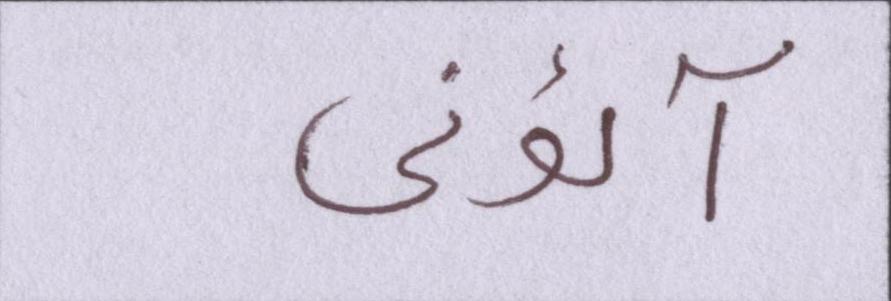 آلؤنی